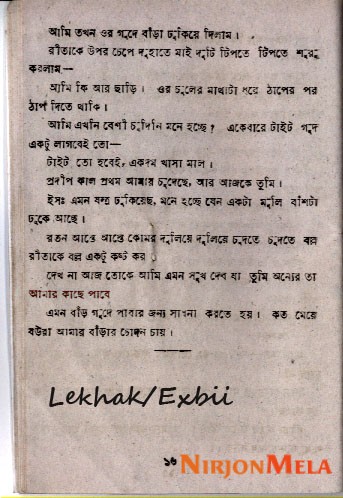 আমি তখন ওর গুদে বাঁড়া ঢুকিয়ে দিলাম।
রীতাকে উপর চেপে দুহাতে মাই দুটি টিপতে টিপতে শুরু
করলাম—
আমি কি আর ছাড়ি। ওর চুলের মাথাটা ধরে ঠাপের পর
ঠাপ দিতে থাকি।
আমি এখনি বেশী চুদিনি মনে হচ্ছে? একেবারে টাইট গুদ
একটু লাগবেই তো—
টাইট তো হবেই, একদম খাসা মাল।
প্রদীপ কাল প্রথম আমায় চুদেছে, আর আজকে তুমি।
ইসঃ এমন যন্ত্র ঢুকিয়েছ, মনে হচ্ছে যেন একটা মুলি বাঁশটা
ঢুকে আছে।
রতন আস্তে আস্তে কোমর দুলিয়ে দুলিয়ে চুদতে চুদতে বল্ল
রীতাকে বল্ল একটু কষ্ট কর।
দেখ না আজ তোকে আমি এমন সুখ দেব যা তুমি অন্যের তা
আমার কাছে পাবে
এমন বাঁড়া গুদে পাবার জন্য সাধনা করতে হয়। কত মেয়ে
বউরা আমার বাঁড়ার চোদন চায়।
Lekhak/Exbii
১৬
NIRJONMELA